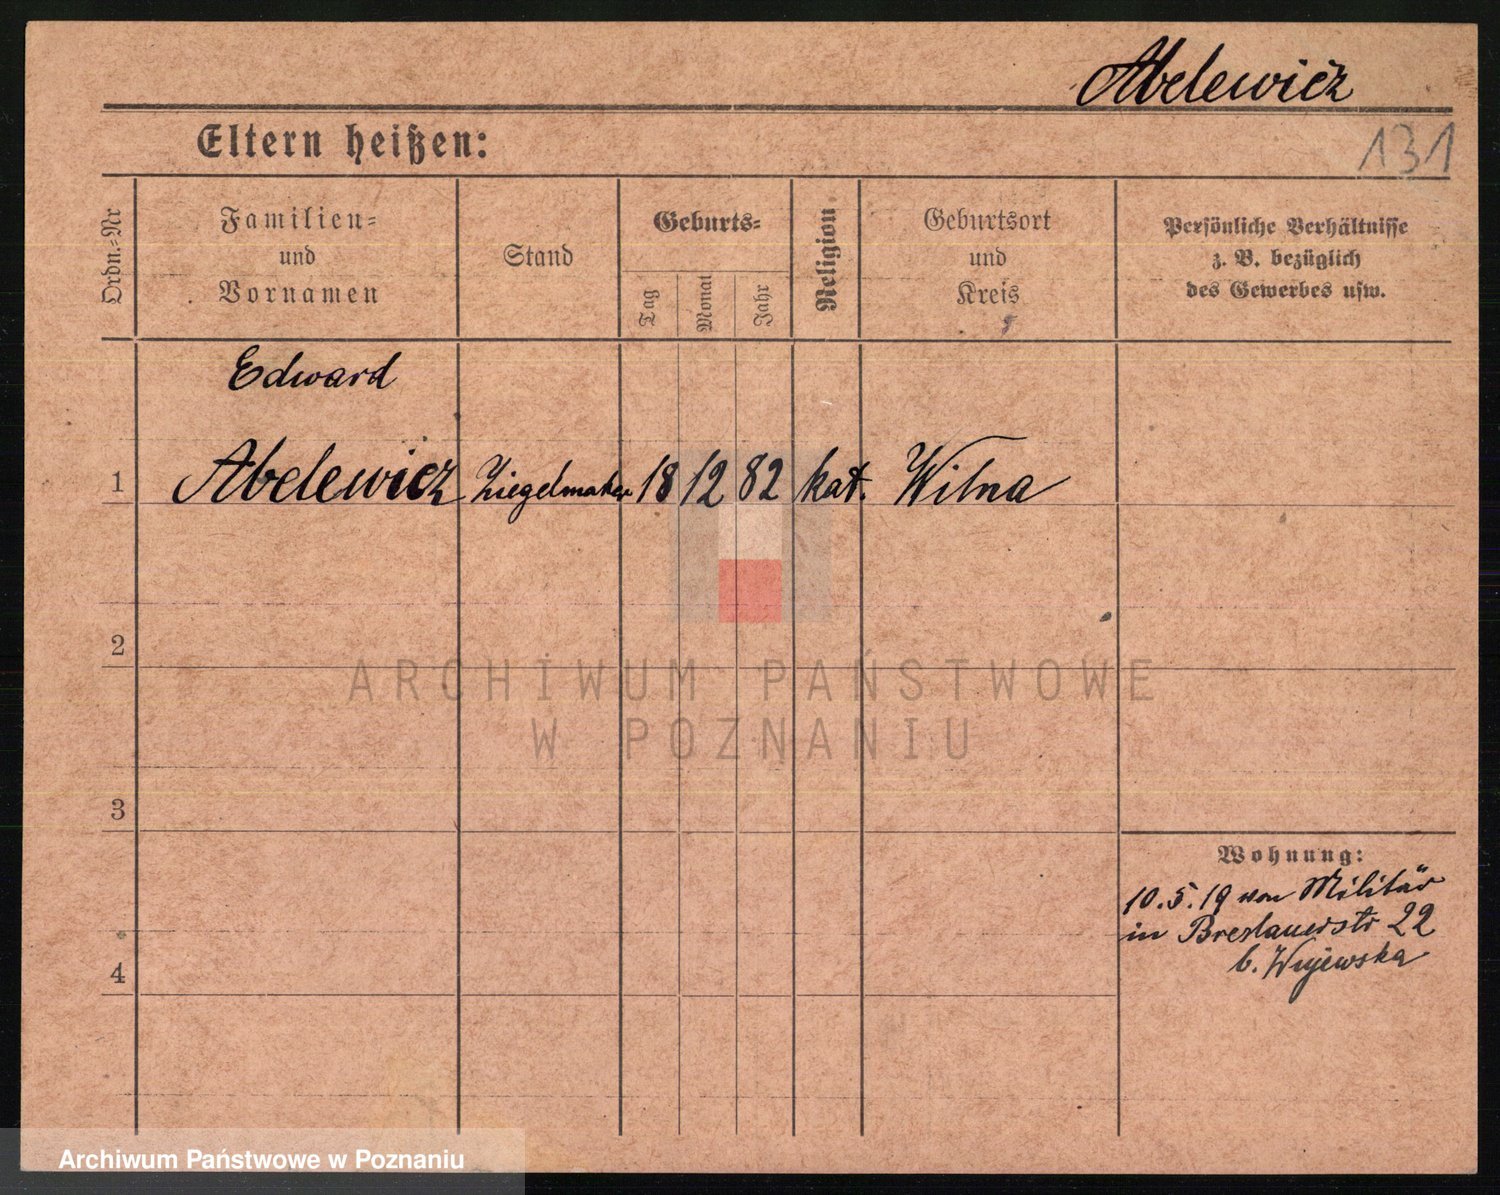 Abelewicz
Eltern heißen:
131
Ordn.=Nr
Familien=
und
Vornamen
Stand
Geburts=
Tag
Monat
Jahr
Religion
Geburtsort
und
Kreis
Persönliche Verhältnisse
z. B. bezüglich
des Gewerbes usw.
Edward
1 Abelewicz Ziegelmaker 18 12 82 kat. Wilna
2
ARCHIWUM PAŃSTWOWE
W POZNANIU
3
Wohnung:
10.5.19 von Militär
in Breslauerstr 22
b. Wujewska
4
Archiwum Państwowe w Poznaniu